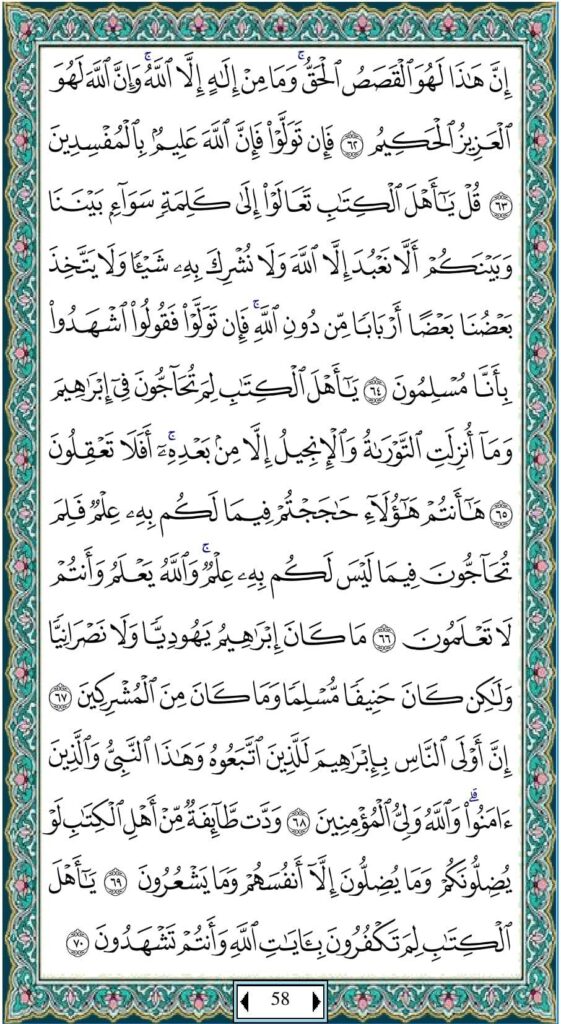 إِنَّ هَـٰذَا لَهُوَ ٱلۡقَصَصُ ٱلۡحَقُّۚ وَمَا مِنۡ إِلَـٰهٍ إِلَّا ٱللَّهُۚ وَإِنَّ ٱللَّهَ لَهُوَ
ٱلۡعَزِيزُ ٱلۡحَكِيمُ ٦٢ فَإِن تَوَلَّوۡاْ فَإِنَّ ٱللَّهَ عَلِيمُۢ بِٱلۡمُفۡسِدِينَ
٦٣ قُلۡ يَـٰٓأَهۡلَ ٱلۡكِتَـٰبِ تَعَالَوۡاْ إِلَىٰ كَلِمَةٖ سَوَآءِۭ بَيۡنَنَا
وَبَيۡنَكُمۡ أَلَّا نَعۡبُدَ إِلَّا ٱللَّهَ وَلَا نُشۡرِكَ بِهِۦ شَيۡـٔٗا وَلَا يَتَّخِذَ
بَعۡضُنَا بَعۡضًا أَرۡبَابٗا مِّن دُونِ ٱللَّهِۚ فَإِن تَوَلَّوۡاْ فَقُولُواْ ٱشۡهَدُواْ
بِأَنَّا مُسۡلِمُونَ ٦٤ يَـٰٓأَهۡلَ ٱلۡكِتَـٰبِ لِمَ تُحَآجُّونَ فِيٓ إِبۡرَٰهِيمَ
وَمَآ أُنزِلَتِ ٱلتَّوۡرَىٰةُ وَٱلۡإِنجِيلُ إِلَّا مِنۢ بَعۡدِهِۦٓۚ أَفَلَا تَعۡقِلُونَ
٦٥ هَـٰٓأَنتُمۡ هَـٰٓؤُلَآءِ حَـٰجَجۡتُمۡ فِيمَا لَكُم بِهِۦ عِلۡمٞ فَلِمَ
تُحَآجُّونَ فِيمَا لَيۡسَ لَكُم بِهِۦ عِلۡمٞۚ وَٱللَّهُ يَعۡلَمُ وَأَنتُمۡ
لَا تَعۡلَمُونَ ٦٦ مَا كَانَ إِبۡرَٰهِيمُ يَهُودِيّٗا وَلَا نَصۡرَانِيّٗا
وَلَـٰكِن كَانَ حَنِيفٗا مُّسۡلِمٗا وَمَا كَانَ مِنَ ٱلۡمُشۡرِكِينَ ٦٧
إِنَّ أَوۡلَى ٱلنَّاسِ بِإِبۡرَٰهِيمَ لَلَّذِينَ ٱتَّبَعُوهُ وَهَـٰذَا ٱلنَّبِيُّ وَٱلَّذِينَ
ءَامَنُواْۗ وَٱللَّهُ وَلِيُّ ٱلۡمُؤۡمِنِينَ ٦٨ وَدَّت طَّآئِفَةٞ مِّنۡ أَهۡلِ ٱلۡكِتَـٰبِ لَوۡ
يُضِلُّونَكُمۡ وَمَا يُضِلُّونَ إِلَّآ أَنفُسَهُمۡ وَمَا يَشۡعُرُونَ ٦٩ يَـٰٓأَهۡلَ
ٱلۡكِتَـٰبِ لِمَ تَكۡفُرُونَ بِـَٔايَـٰتِ ٱللَّهِ وَأَنتُمۡ تَشۡهَدُونَ ٧٠
58